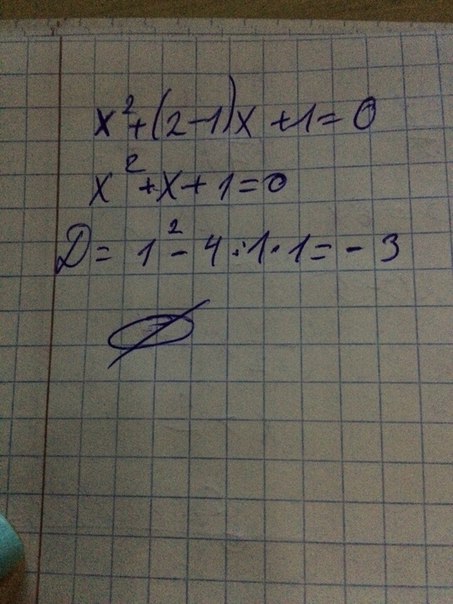 x²+(2-1)x+1=0
x²+x+1=0
D=1²-4·1·1=-3
∅